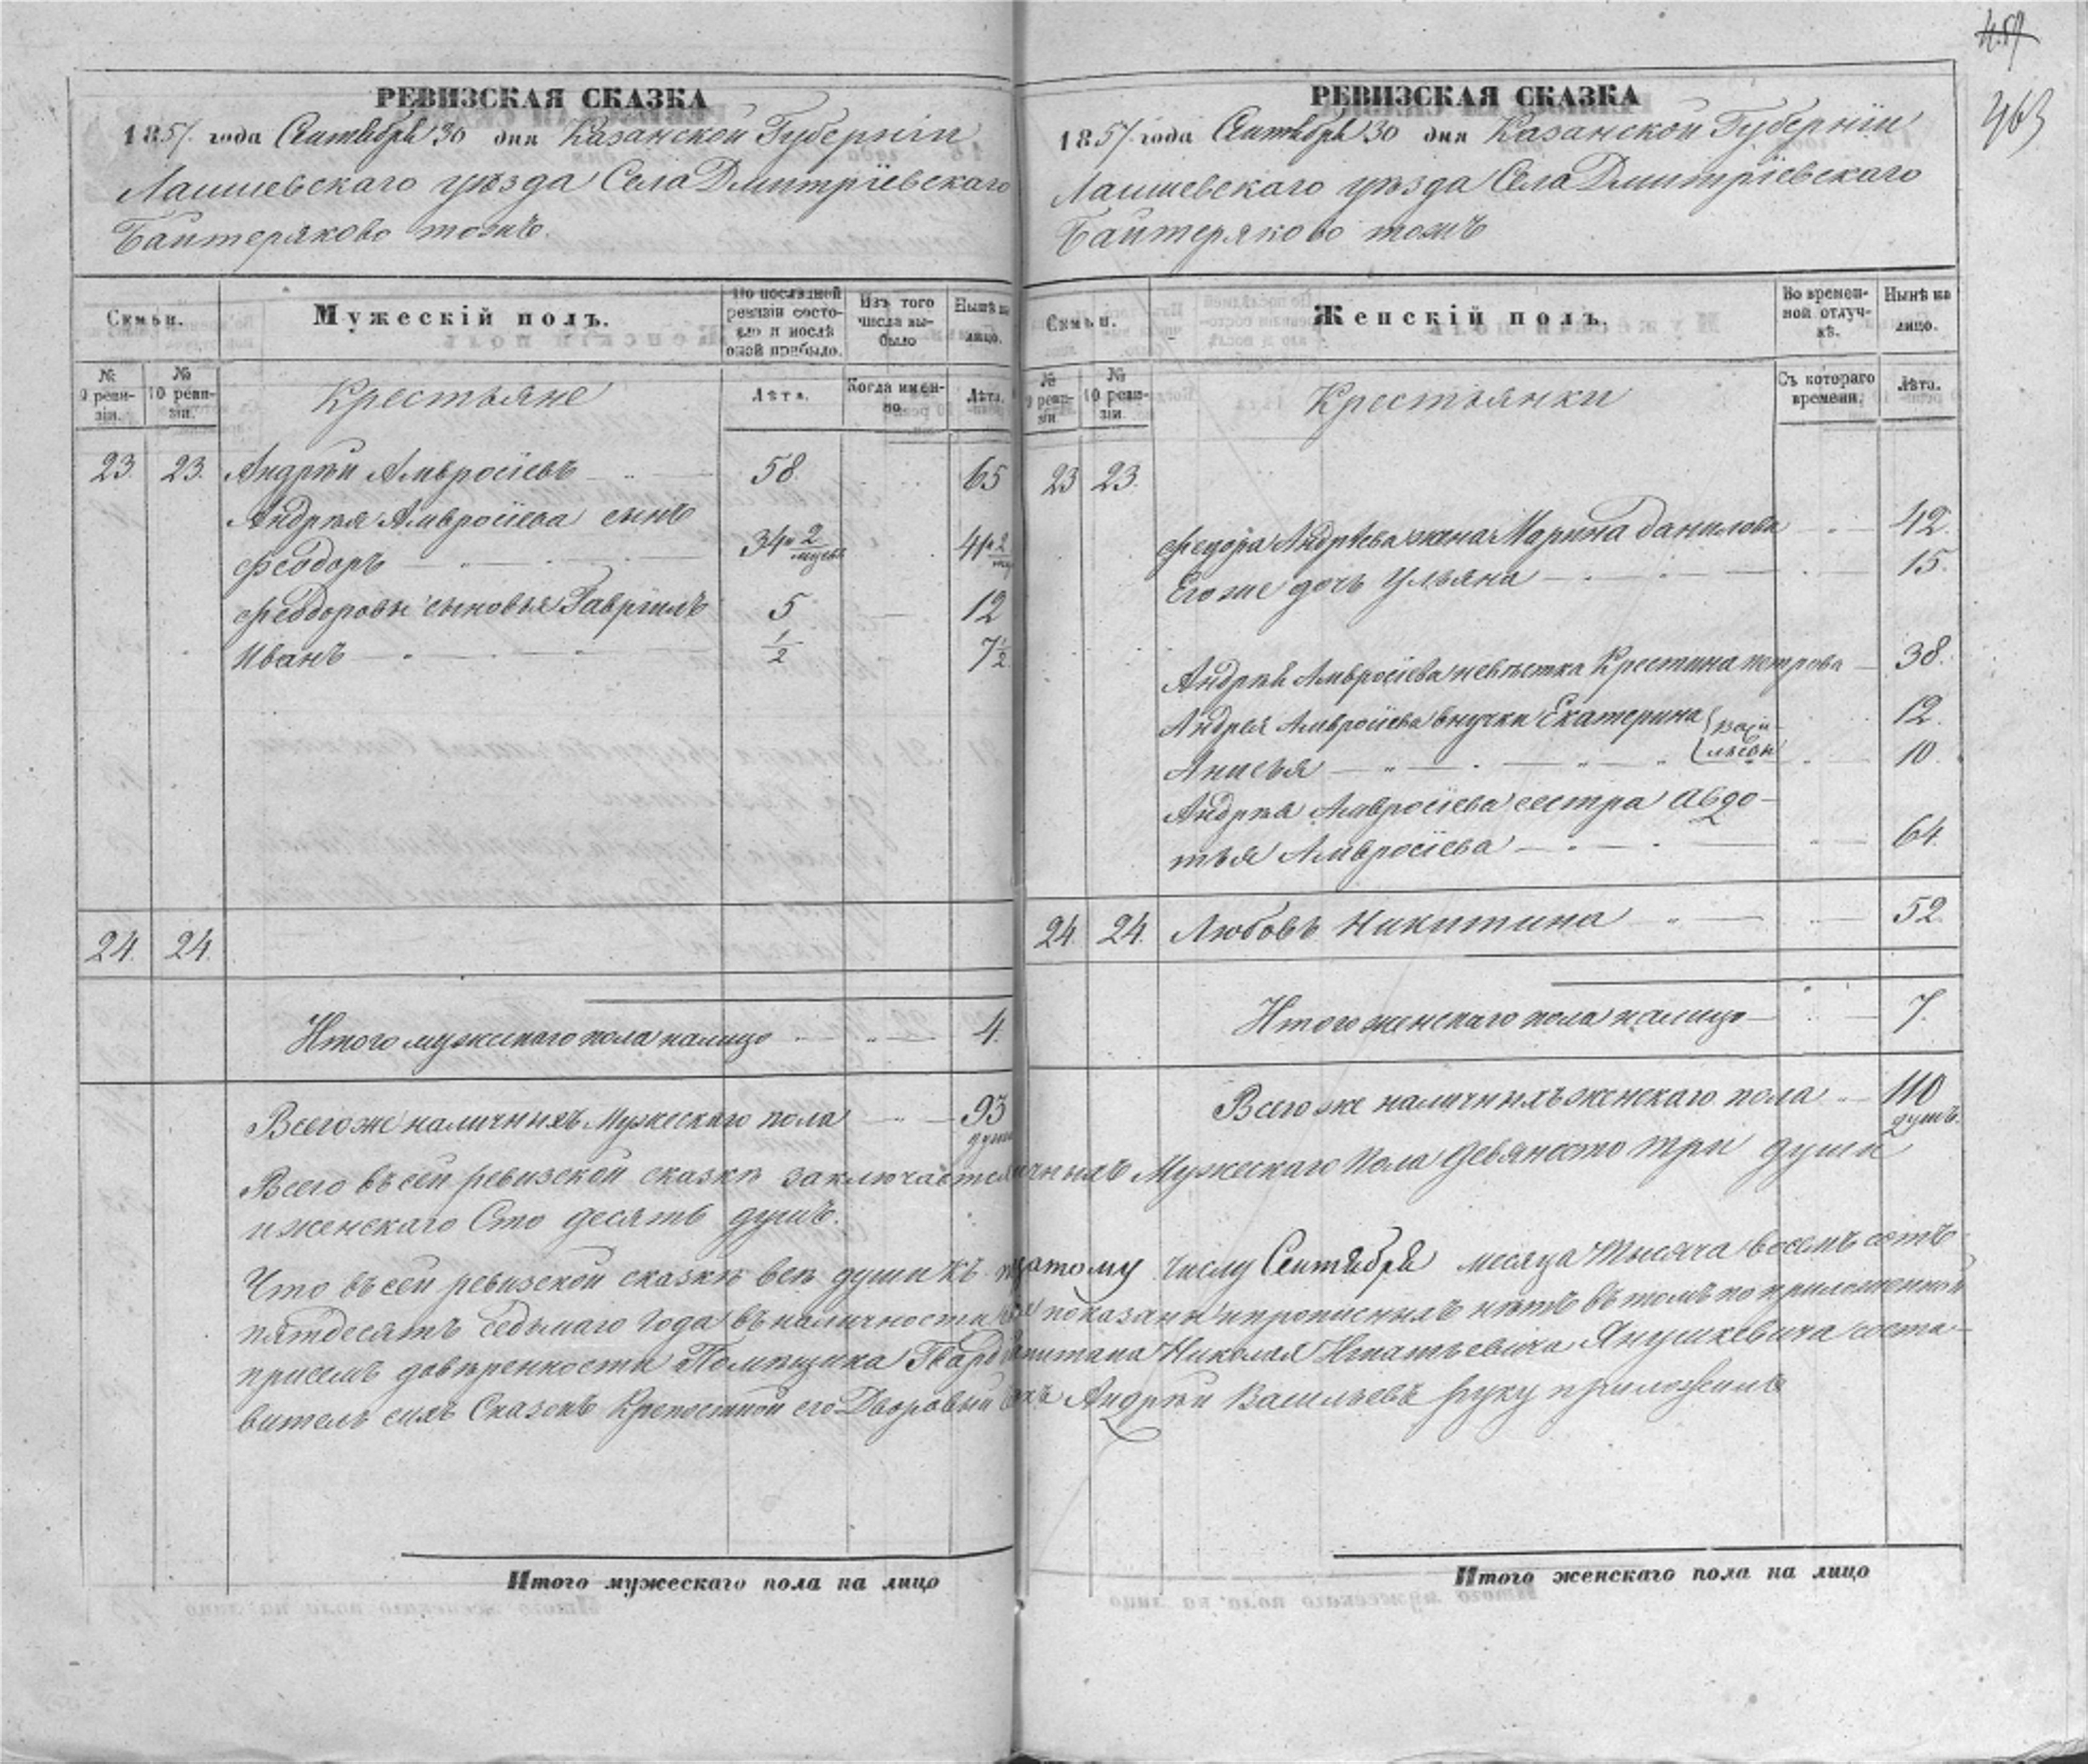 459
463
РЕВИЗСКАЯ СКАЗКА
1857 года Сентября 30 дня Казанской Губерніи
Лаишевскаго уѣзда Села Дмитріевскаго
Байтеряково тожъ.
Семьи.
Мужескій полъ.
По послѣдней ревизіи состояло и послѣ оной прибыло.
Изъ того числа выбыло
Нынѣ на лицо.
№ 9 ревизіи.
№ 10 ревизіи.
Крестьяне
Лѣта.
Когда именно.
Лѣта.
23 23. Андрѣй Амвросіевъ 58. 65
Андрѣя Амвросіева сынъ
Феодоръ 34 и 2 41 и 2
Феодоровы сыновья Гавріилъ 5 12
Иванъ 1/2 7 1/2
24. 24.
Итого мужескаго пола налицо 4.
Всего же наличныхъ Мужескаго пола 93
душ
РЕВИЗСКАЯ СКАЗКА
1857 года Сентября 30 дня Казанской Губерніи
Лаишевскаго уѣзда Села Дмитріевскаго
Байтеряково тожъ
Семьи.
Женскій полъ.
Во временной отлучкѣ.
Нынѣ на лицо.
№ 9 ревизіи
№ 10 ревизіи
Крестьянки
Съ котораго времени.
Лѣта.
23 23.
Федора Андрѣева жена Марина Данилова 42.
Его же дочь Ульяна 15.
Андрѣя Амвросіева невѣстка Крестина Петрова 38.
Андрея Амвросіева внучки Екатерина 12.
Анисья 10.
Васильевы
Андрѣя Амвросіева сестра Авдо-
тья Амвросіева 64.
24. 24. Любовь Никитина 52
Итого женскаго пола налицо 7.
Всего же наличныхъ женскаго пола 110
душъ.
Всего въ сей ревизской сказкѣ заключается личныхъ Мужескаго Пола девяносто три души
и женскаго Сто десять душъ.
Что въ сей ревизской сказкѣ всѣ души къ тому числу Сентября месяца тысяча восемь сотъ
пятдесятъ седьмаго года въ наличности показаны и прописныхъ нѣтъ въ томъ по приложенной
присемъ довѣренности Помѣщика Гвард капитана Николая Игнатьевича Янушкевича соста-
витель сихъ Сказокъ Крепостной его Дворовый Андрѣй Васильевъ руку приложилъ
Итого мужескаго пола на лицо
Итого женскаго пола на лицо